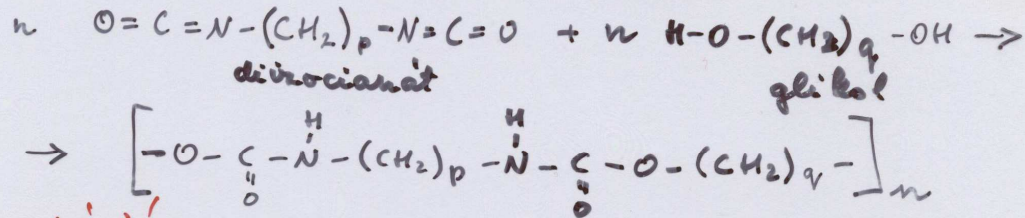 n O=C=N-(CH₂)ₚ-N=C=O + n H-O-(CH₂)q-OH →
diizocianát glikol
→ [-O-C(=O)-N(H)-(CH₂)ₚ-N(H)-C(=O)-O-(CH₂)q-]n